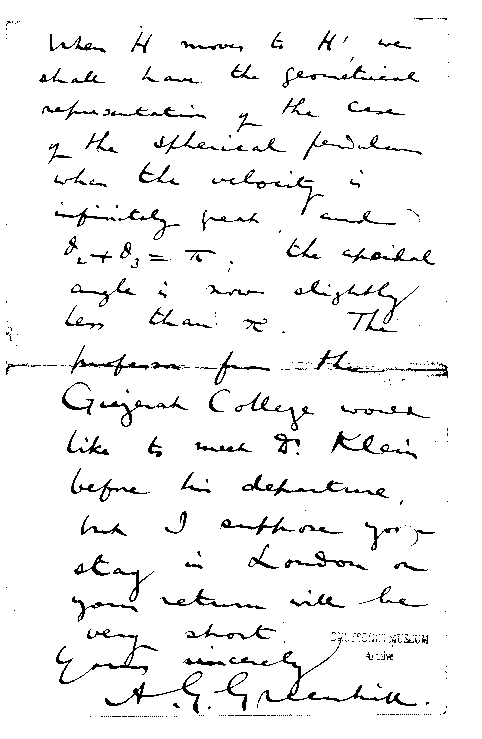 When H moves to H', we
shall have the geometrical
representation of the case
of the spherical pendulum
when the velocity is
infinitely great, and
ϑ₂ + ϑ₃ = π; the apsidal
angle is now slightly
less than π. The
professor from the
Gujerah College would
like to meet Dr. Klein
before his departure,
but I suppose your
stay in London on
your return will be
very short.
Yours sincerely
A. G. Greenhill.
MUSEUM
Archive